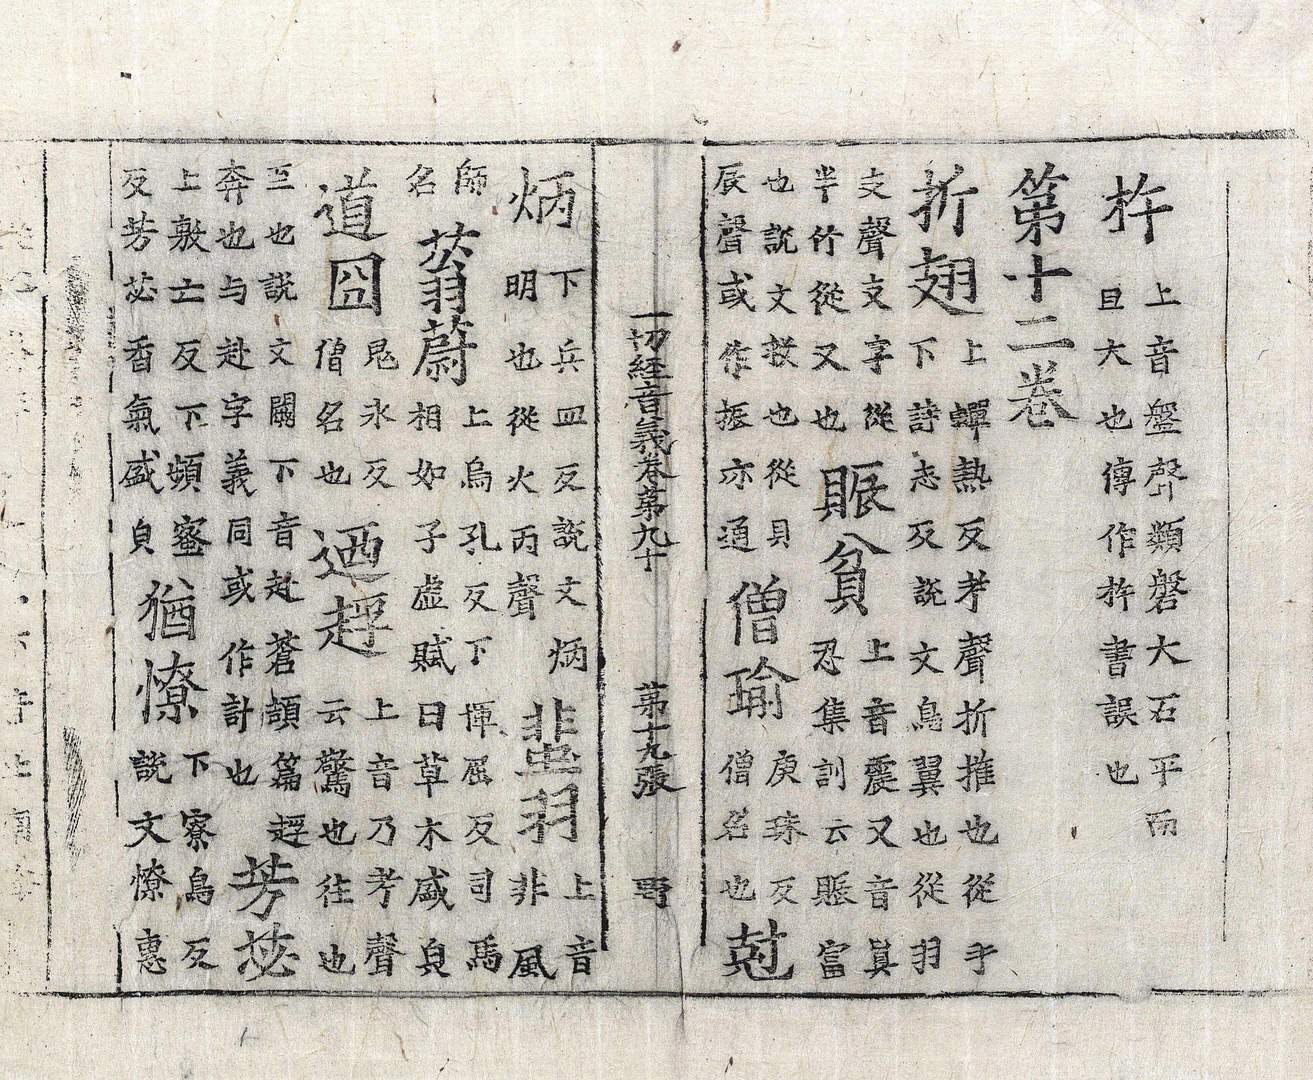 杵 上音盤聲類磐大石平而
且大也傳作杵書誤也
第十二卷
折翅 上蟬熱反考聲折摧也從手
下詩志反說文鳥翼也從羽
支聲支字從 賑貧 上音震又音真
半竹從又也 忍集訓云賑富
也說文救也從貝 僧瑜 庾珠反 尅
辰聲或作振亦通 僧名也
一切經音義卷第九十 第十九張 野
炳 下兵皿反說文炳 韭羽 上音
明也從火丙聲 非風
師 蓊蔚 上烏孔反下揮屈反司馬
名 相如子虛賦曰草木盛皃
道囧 晃永反 迺䟽 上音乃考聲
僧名也 云驚也往也
亡也說文闕下音赴蒼頡篇 芳苾
奔也与赴字義同或作訃也
上敷亡反下頻蜜 猶憭 下寮鳥反
反芳苾香氣盛皃 說文憭惠